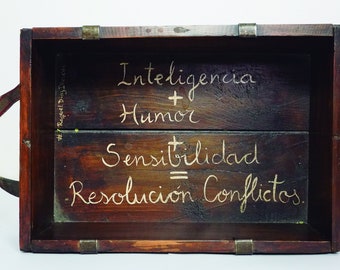 Inteligencia
+
Humor
+
Sensibilidad
=
Resolución Conflictos